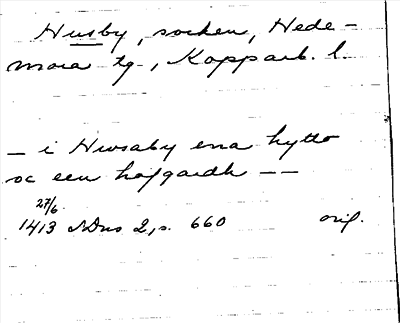 Husby, socken, Hede-
mora tg., Kopparb. l.
— i Hwsaby ena hytto
oc een hofgardh — —
27/6
1413 SDns 2, s. 660 orig.